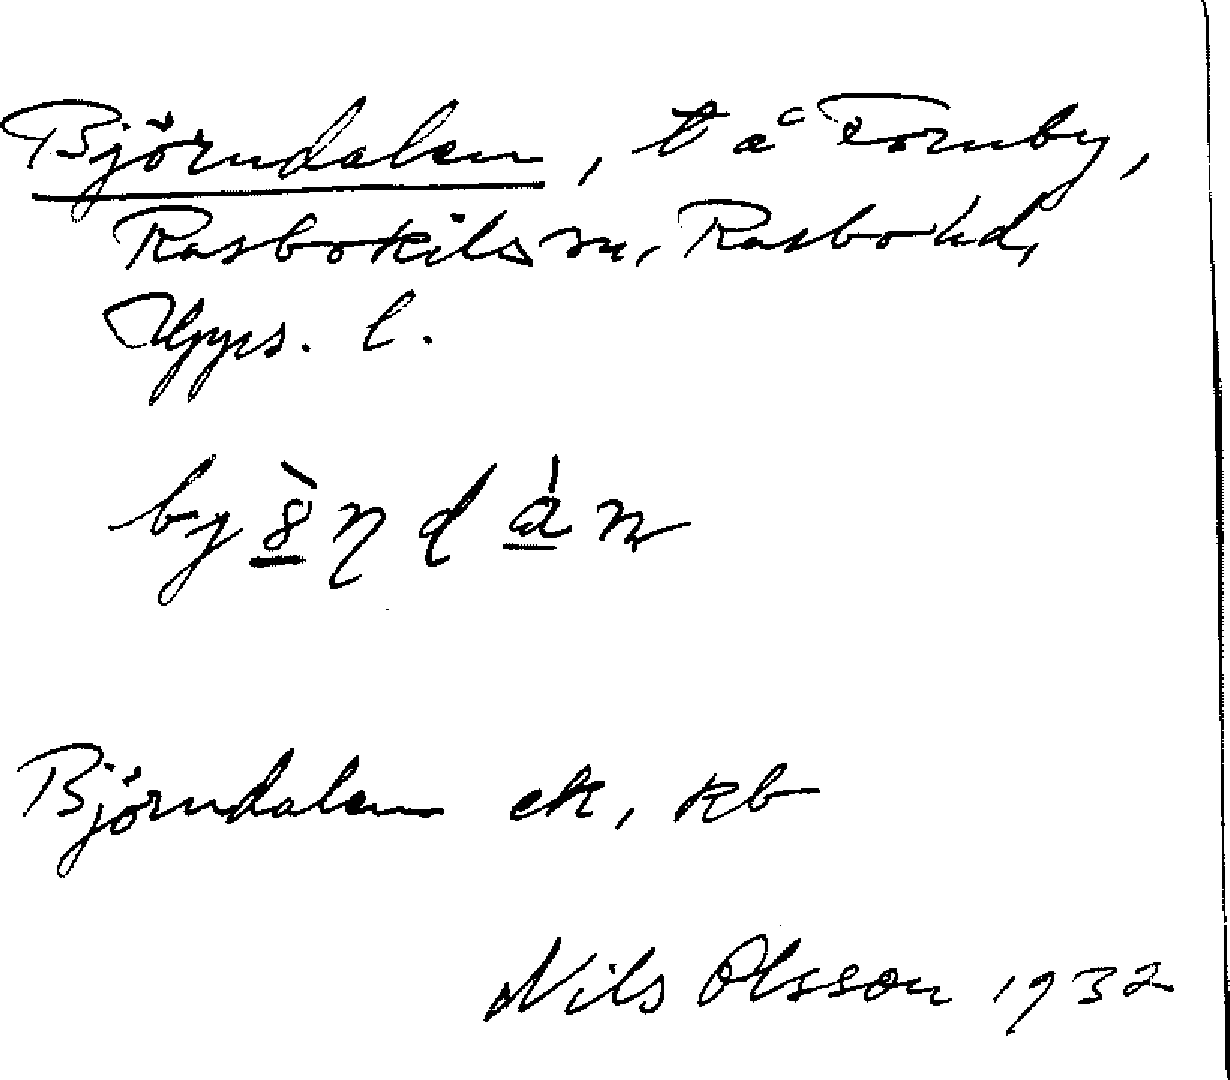 Björndalen, t å Fornby,
Rasbokils sn, Rasbo hd,
Upps. l.
Björndalen ek, kb
Nils Olsson 1932